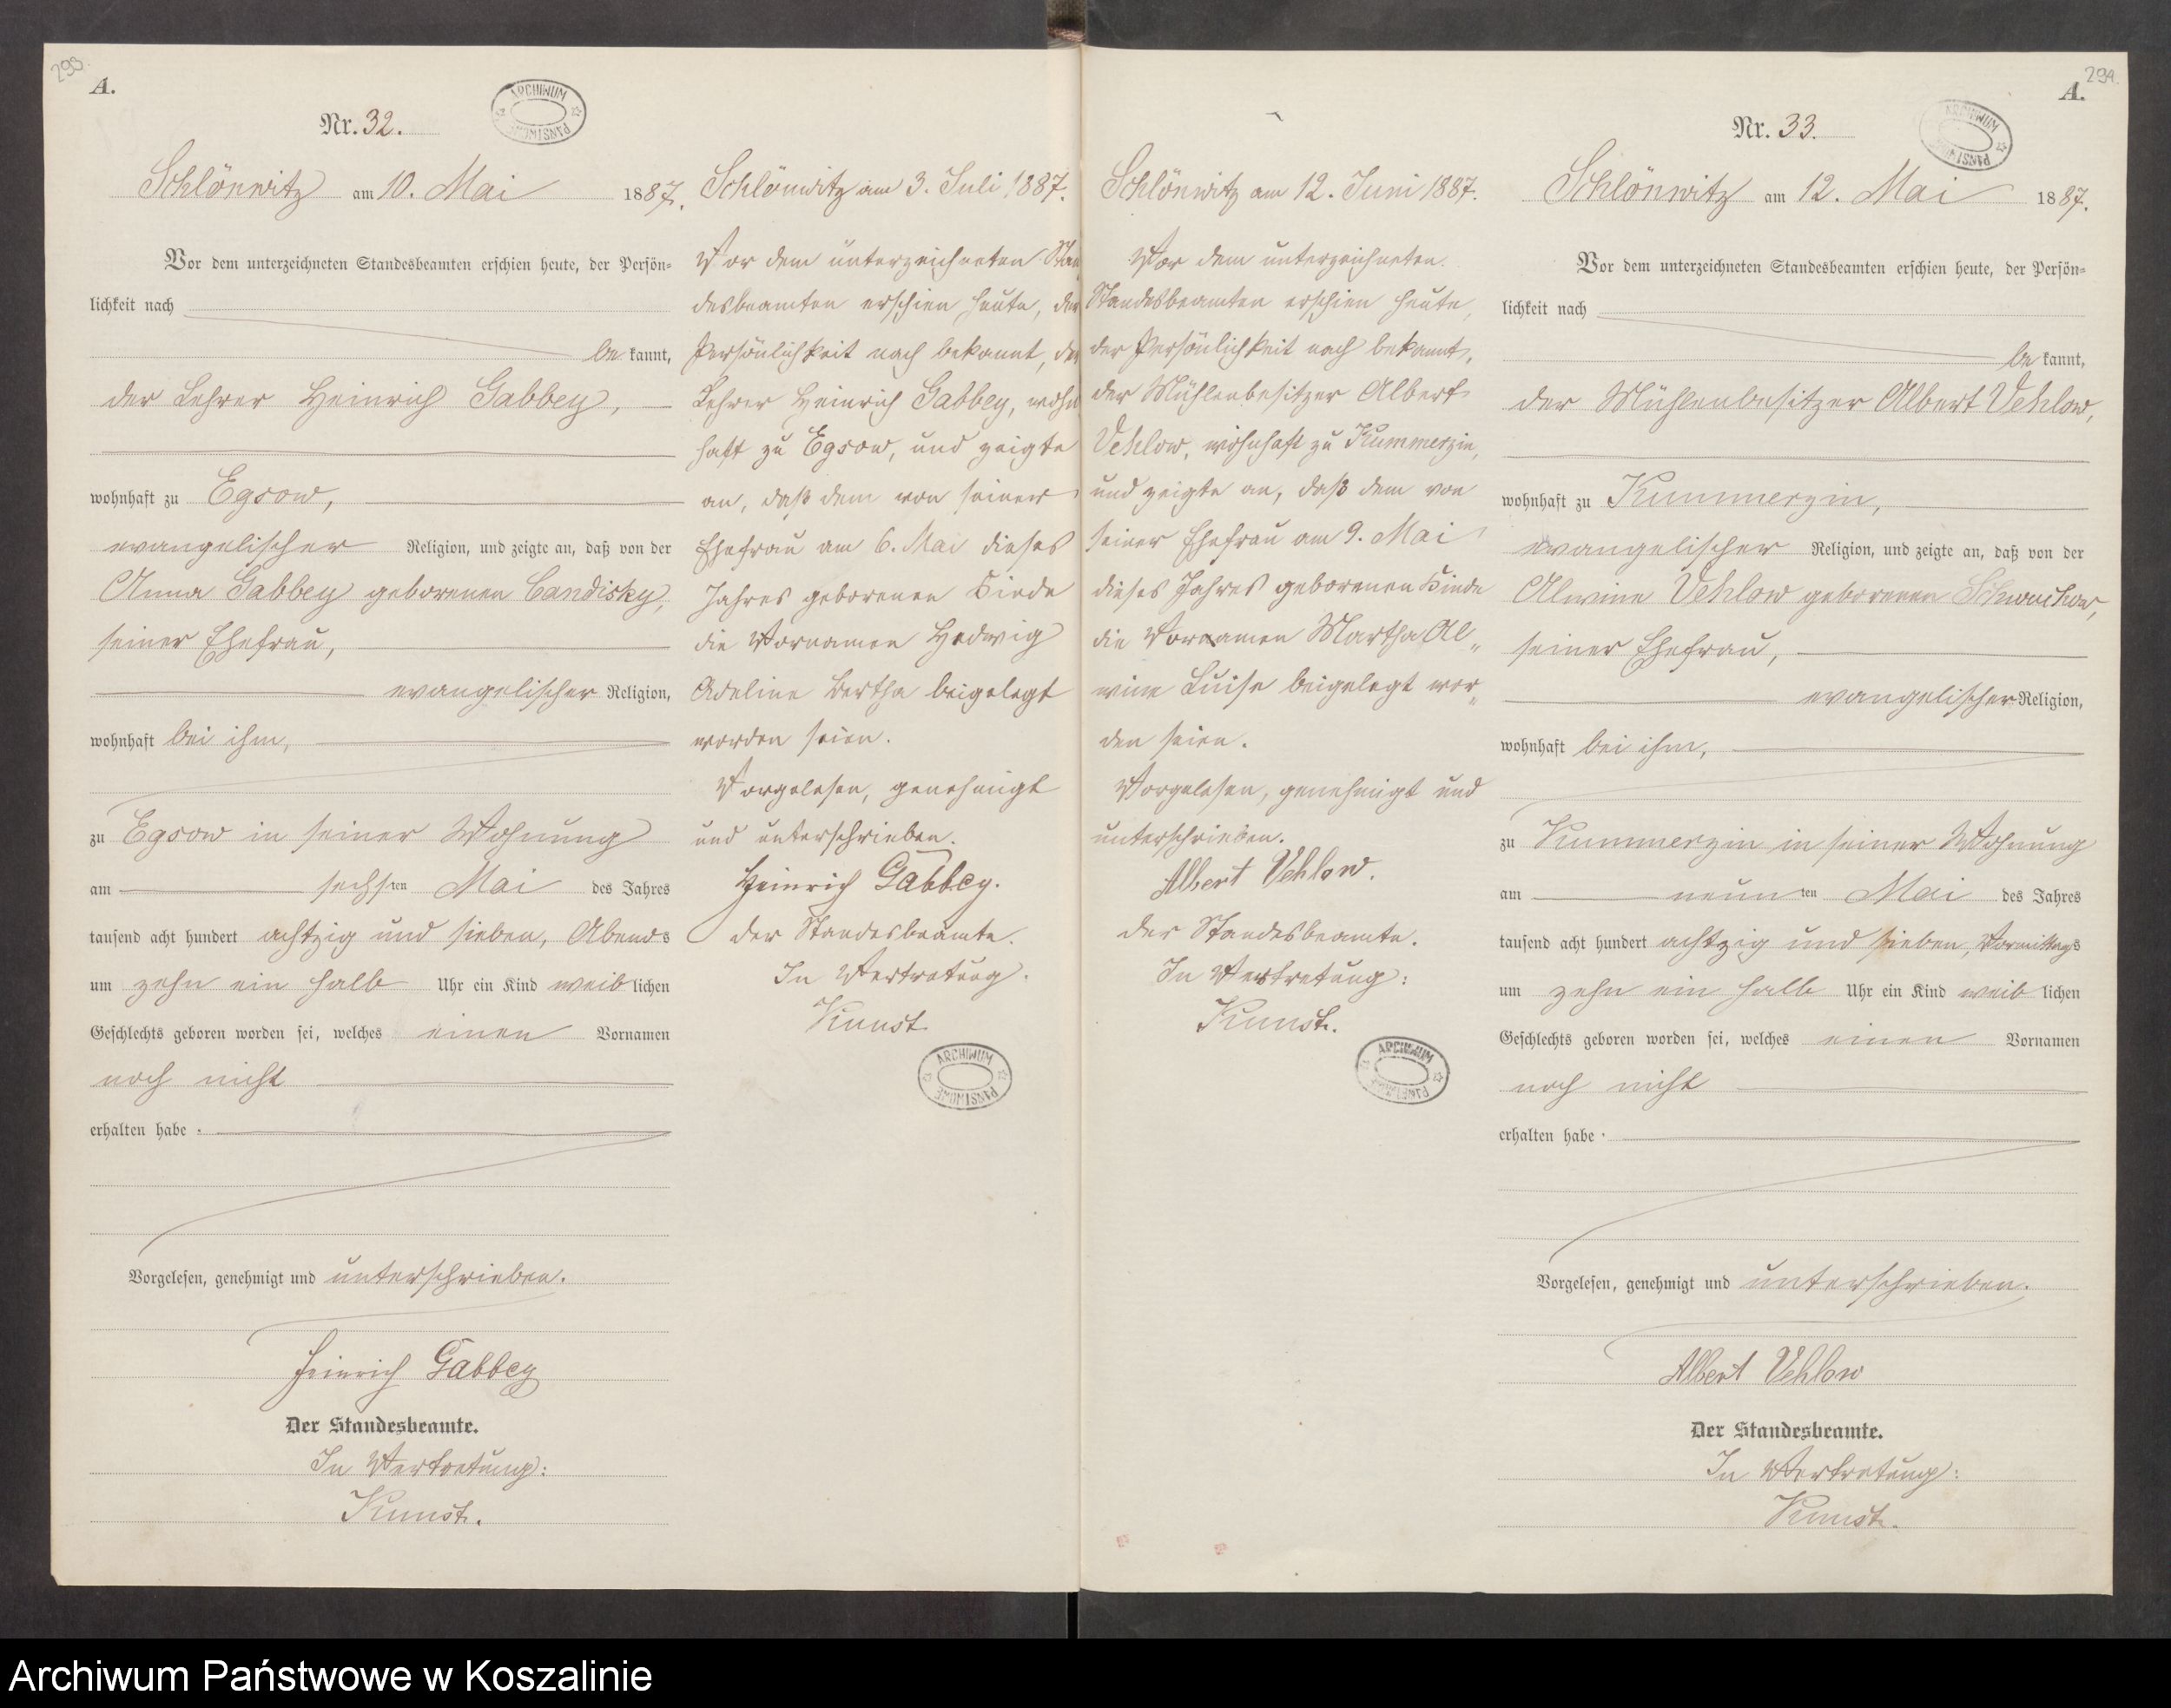 293.
A.
ARCHIWUM PAŃSTWOWE
Nr. 32.
Schlönwitz am 10. Mai 1887.
Vor dem unterzeichneten Standesbeamten erschien heute, der Persön=
lichkeit nach
be kannt,
der Lehrer Heinrich Gabbey,
wohnhaft zu Egsow,
evangelischer Religion, und zeigte an, daß von der
Anna Gabbey geborenen Candisky,
seiner Ehefrau,
evangelischer Religion,
wohnhaft bei ihm,
zu Egsow in seiner Wohnung
am sechsten Mai des Jahres
tausend acht hundert achtzig und sieben, Abends
um zehn ein halb Uhr ein Kind weib lichen
Geschlechts geboren worden sei, welches einen Vornamen
noch nicht
erhalten habe.
Vorgelesen, genehmigt und unterschrieben.
Heinrich Gabbey
Der Standesbeamte.
In Vertretung:
Kunst.
Schlönwitz am 3. Juli 1887.
Vor dem unterzeichneten Stan
desbeamten erschien heute, der
Persönlichkeit nach bekannt, der
Lehrer Heinrich Gabbey, wohn
haft zu Egsow, und zeigte
an, daß dem von seiner
Ehefrau am 6. Mai dieses
Jahres geborenen Kinde
die Vornamen Hedwig
Adeline Bertha beigelegt
worden seien.
Vorgelesen, genehmigt
und unterschrieben.
Heinrich Gabbey.
Der Standesbeamte.
In Vertretung.
Kunst
ARCHIWUM PAŃSTWOWE
Schlönwitz am 12. Juni 1887.
Vor dem unterzeichneten
Standesbeamten erschien heute,
der Persönlichkeit nach bekannt,
der Mühlenbesitzer Albert
Vehlow, wohnhaft zu Kummerzin,
und zeigte an, daß dem von
seiner Ehefrau am 9. Mai
dieses Jahres geborenen Kinde
die Vornamen Martha Al„
wine Luise beigelegt wor„
den seien.
Vorgelesen, genehmigt und
unterschrieben.
Albert Vehlow.
Der Standesbeamte.
In Vertretung:
Kunst.
ARCHIWUM PAŃSTWOWE
294.
A.
ARCHIWUM PAŃSTWOWE
Nr. 33.
Schlönwitz am 12. Mai 1887.
Vor dem unterzeichneten Standesbeamten erschien heute, der Persön=
lichkeit nach
be kannt,
der Mühlenbesitzer Albert Vehlow,
wohnhaft zu Kummerzin,
evangelischer Religion, und zeigte an, daß von der
Alwine Vehlow geborenen
seiner Ehefrau,
evangelischer Religion,
wohnhaft bei ihm,
zu Kummerzin in seiner Wohnung
am neun ten Mai des Jahres
tausend acht hundert achtzig und sieben, Vormittags
um zehn ein halb Uhr ein Kind weib lichen
Geschlechts geboren worden sei, welches einen Vornamen
noch nicht
erhalten habe.
Vorgelesen, genehmigt und unterschrieben.
Albert Vehlow
Der Standesbeamte.
In Vertretung:
Kunst.
Archiwum Państwowe w Koszalinie